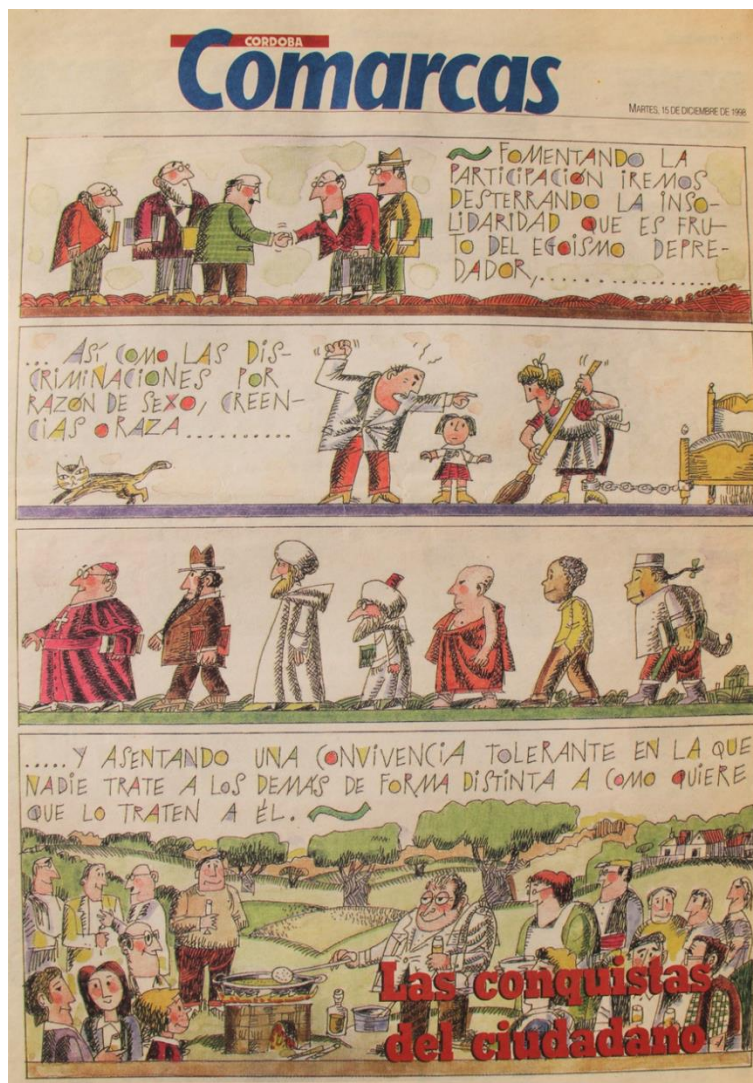 CORDOBA
Comarcas
MARTES, 15 DE DICIEMBRE DE 1998
~ FOMENTANDO LA
PARTICIPACIÓN IREMOS
DESTERRANDO LA INSO-
LIDARIDAD QUE ES FRU-
TO DEL EGOISMO DEPRE-
DADOR,................
... ASÍ COMO LAS DIS-
CRIMINACIONES POR
RAZÓN DE SEXO, CREEN-
CIAS O RAZA...........
..... Y ASENTANDO UNA CONVIVENCIA TOLERANTE EN LA QUE
NADIE TRATE A LOS DEMÁS DE FORMA DISTINTA A COMO QUIERE
QUE LO TRATEN A ÉL. ~
Las conquistas
del ciudadano